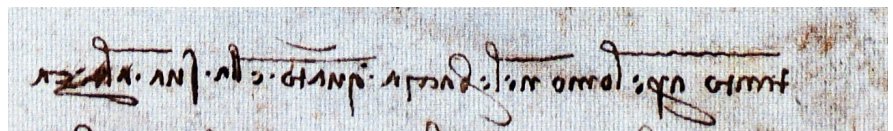 tanto apre lomo nele braccia quanto ella sua alteza